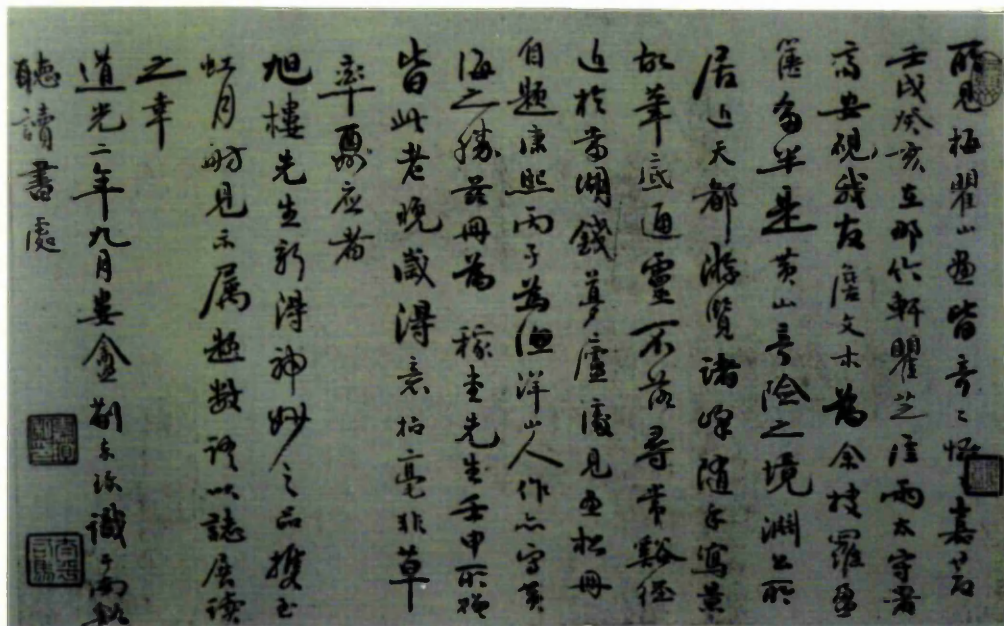 所見梅瞿山画皆奇之惟嘉慶
壬戌癸亥在那竹軒瞿芝庭兩太守署
高安硯戎友詹文木為余搜羅盈
篋多半是黃山奇險之境淵公所
居近天都游覽諸峰隨手寫景
故筆底通靈不落尋常谿徑
近於常湖錢夢廬處見画松冊
自題康熙丙子為漁洋山人作亦寫黃
海之勝茲冊為稼堂先生壬申所贈
皆此老晚歲得意拈毫非草
率酬應者
旭樓先生新得神妙之品攜至
虹月舫見示屬題數語以誌展讀
之幸
道光二年九月婁盦識于南
聽讀書處